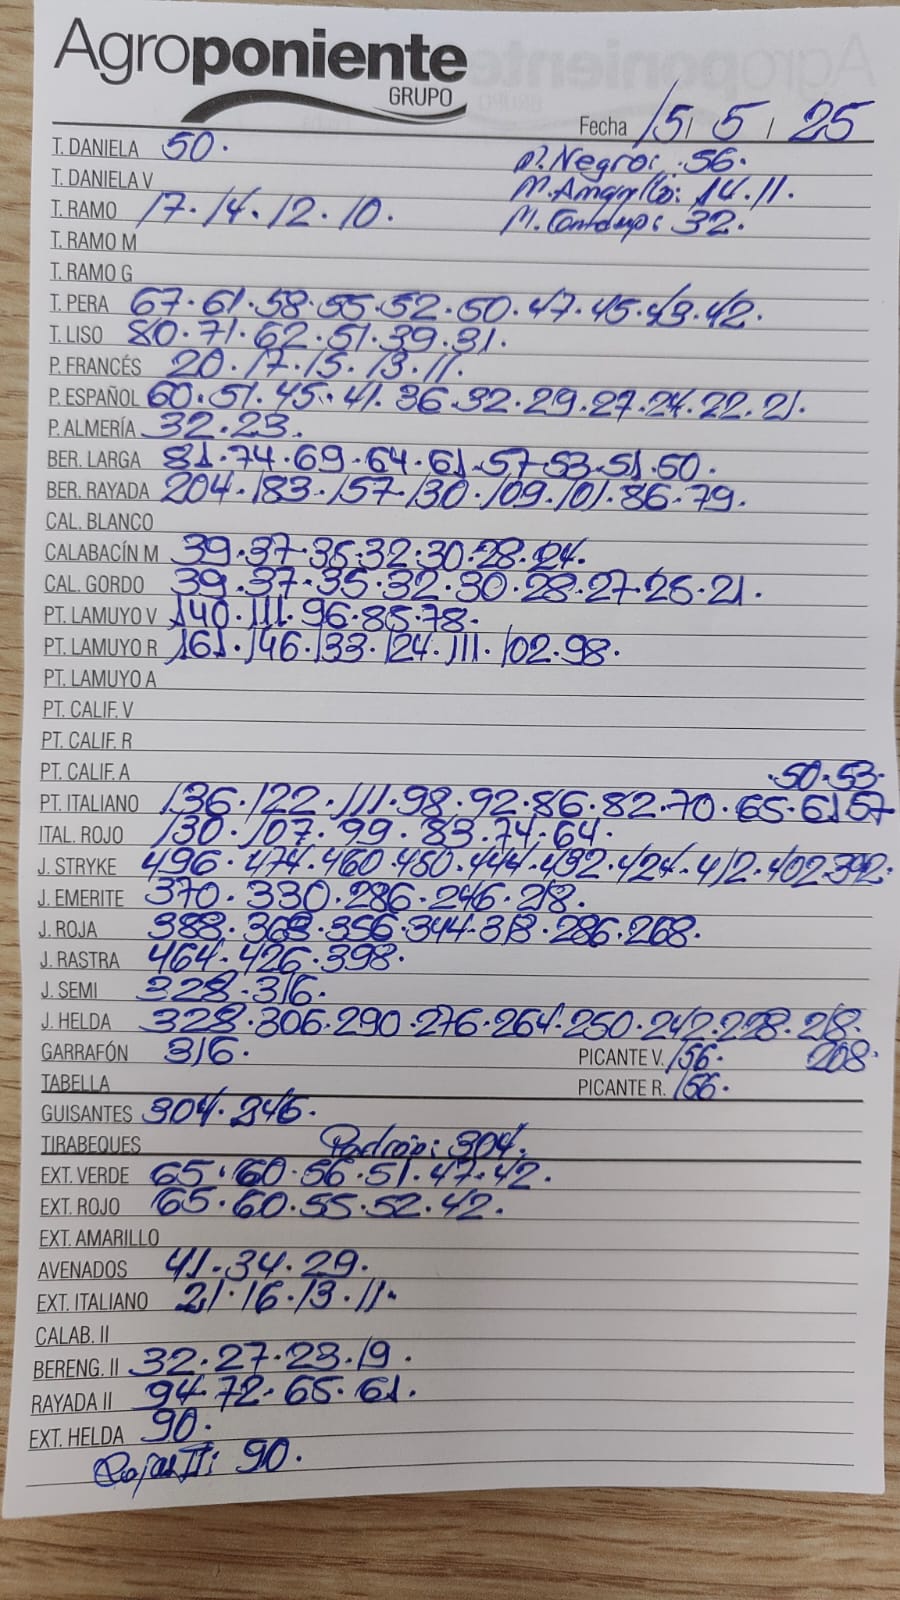 Agroponiente
GRUPO
Fecha 15/ 5 / 25
T. DANIELA 50. M. Negro: 56.
T. DANIELA V M. Amarillo: 14.11.
T. RAMO 17.14.12.10. M. Cantalup: 32.
T. RAMO M
T. RAMO G
T. PERA 67.61.58.55.52.50.47.45.43.42.
T. LISO 80.71.62.51.39.31.
P. FRANCÉS 20.17.15.13.11.
P. ESPAÑOL 60.51.45.41.36.32.29.27.24.22.21.
P. ALMERÍA 32.23.
BER. LARGA 81.74.69.64.61.57.53.51.50.
BER. RAYADA 204.183.157.130.109.101.86.79.
CAL. BLANCO
CALABACÍN M 39.37.35.32.30.28.24.
CAL. GORDO 39.37.35.32.30.28.27.25.21.
PT. LAMUYO V 140.111.96.85.78.
PT. LAMUYO R 161.146.133.124.111.102.98.
PT. LAMUYO A
PT. CALIF. V
PT. CALIF. R
PT. CALIF. A .50.53.
PT. ITALIANO 136.122.111.98.92.86.82.70.65.61.57
ITAL. ROJO 130.107.99.83.74.64.
J. STRYKE 496.474.460.450.444.432.424.412.402.392.
J. EMERITE 370.330.286.246.218.
J. ROJA 388.368.356.344.318.286.268.
J. RASTRA 464.426.398.
J. SEMI 328.316.
J. HELDA 328.306.290.276.264.250.242.228.218.
GARRAFÓN 316. PICANTE V. 156. 208.
TABELLA PICANTE R. 156.
GUISANTES 304.246.
TIRABEQUES Padrón: 304.
EXT. VERDE 65.60.56.51.47.42.
EXT. ROJO 65.60.55.52.42.
EXT. AMARILLO
AVENADOS 41.34.29.
EXT. ITALIANO 21.16.13.11.
CALAB. II
BERENG. II 32.27.23.19.
RAYADA II 94.72.65.61.
EXT. HELDA 90.
Rojas II: 90.